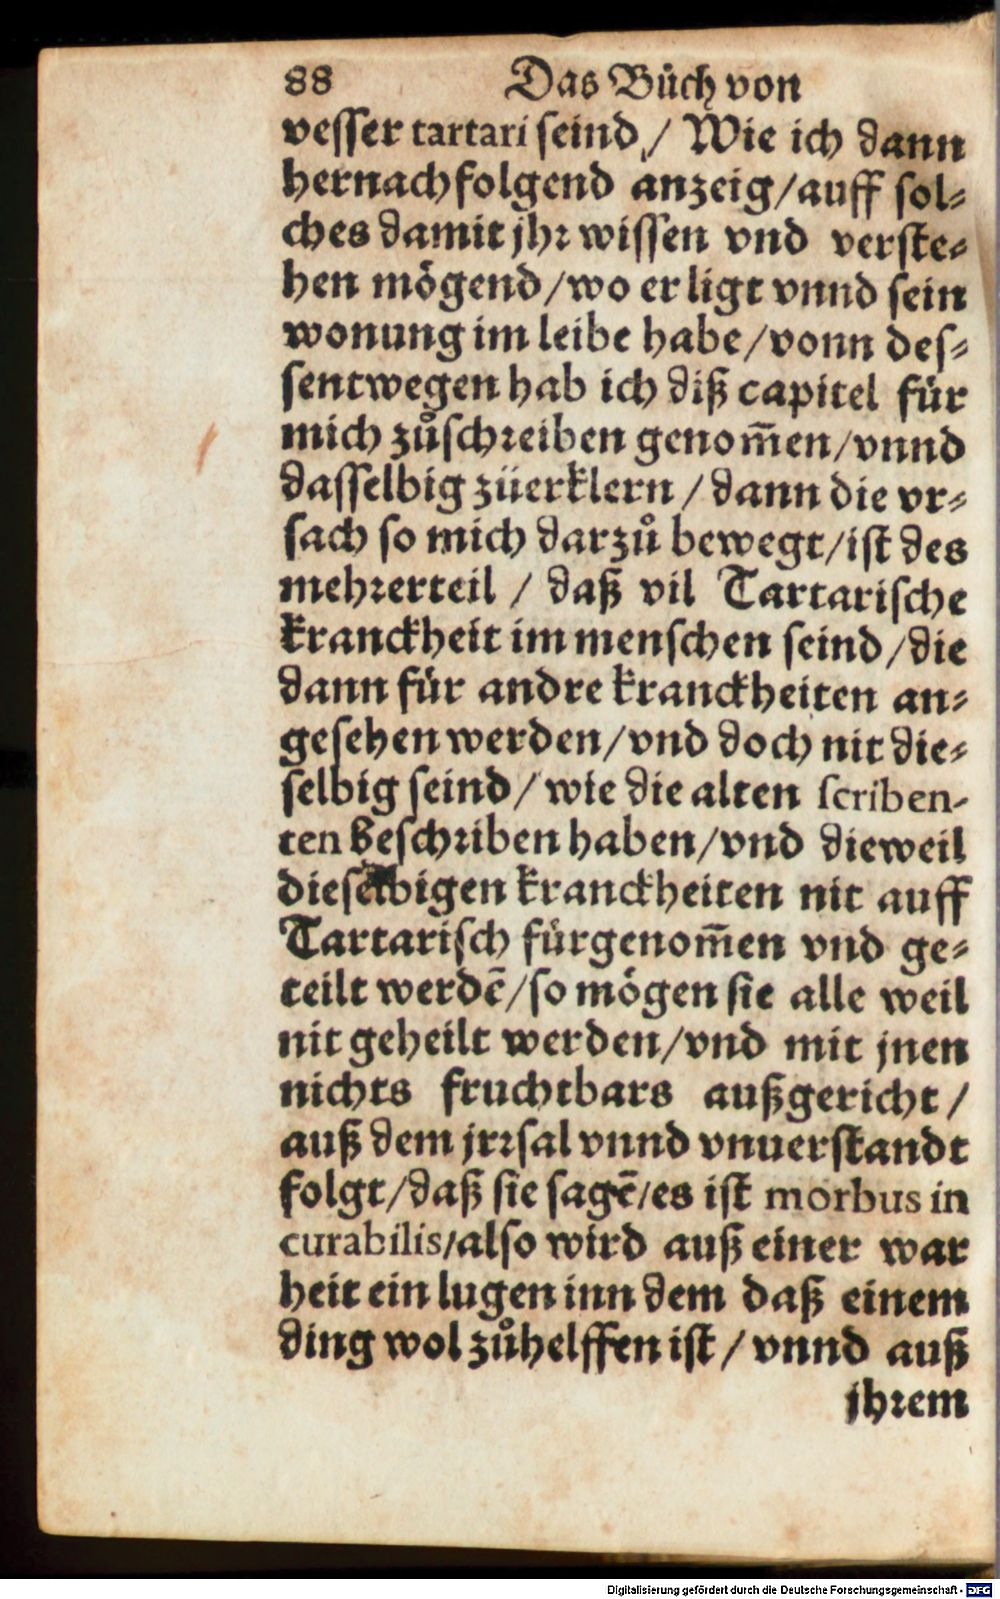 88 Das Bůch von
vesser tartari seind / Wie ich dann
hernachfolgend anzeig/auff sol-
ches damit jhr wissen vnd verste-
hen mögend/wo er ligt vnnd sein
wonung im leibe habe/vonn des-
sentwegen hab ich diß capitel für
mich zůschreiben genom̃en/vnnd
dasselbig züerklern / dann die vr-
sach so mich darzů bewegt/ist des
mehrerteil / daß vil Tartarische
kranckheit im menschen seind/die
dann für andre kranckheiten an-
gesehen werden/vnd doch nit die-
selbig seind/ wie die alten scriben-
ten beschriben haben/vnd dieweil
dieselbigen kranckheiten nit auff
Tartarisch fürgenom̃en vnd ge-
teilt werdẽ/so mögen sie alle weil
nit geheilt werden/vnd mit jnen
nichts fruchtbars außgericht /
auß dem jrrsal vnnd vnuerstandt
folgt/daß sie sagẽ/es ist morbus in
curabilis/also wird auß einer war
heit ein lugen inn dem daß einem
ding wol zůhelffen ist / vnnd auß
jhrem
Digitalisierung gefördert durch die Deutsche Forschungsgemeinschaft - DFG